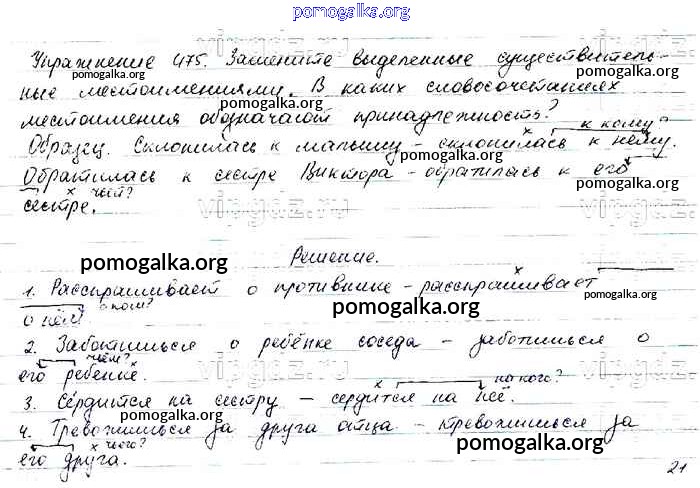 pomogalka.org
Упражнение 475. Замените выделенные существитель-
ные местоимениями. В каких словосочетаниях
pomogalka.org
pomogalka.org
местоимения обозначают принадлежность?
к кому?
Образец. Склонилась к малышу - склонилась к нему.
pomogalka.org
Обратилась к сестре Виктора - обратилась к его
pomogalka.org
чьей?
сестре.
Решение.
pomogalka.org
1. Расспрашивает о противнике - расспрашивает
pomogalka.org
pomogalka.org
о ком?
о нём
2. Заботишься о ребёнке соседа - заботишься о
pomogalka.org
его ребёнке.
на кого?
pomogalka.org
3. Сердится на сестру - сердится на неё.
pomogalka.org
4. Тревожишься за друга отца - тревожишься за
чьего?
pomogalka.org
его друга.
21